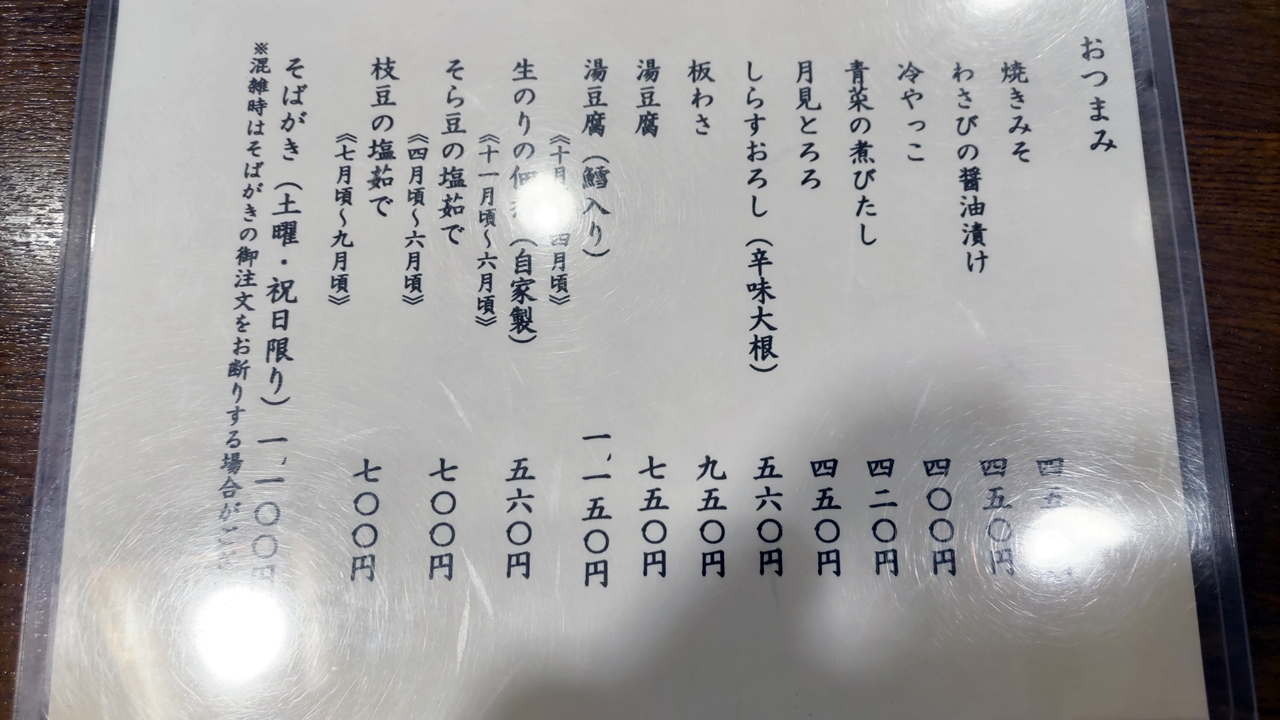 おつまみ
焼きみそ 四五
わさびの醤油漬け 四五〇円
冷やっこ 四〇〇円
青菜の煮びたし 四二〇円
月見とろろ 四五〇円
しらすおろし（辛味大根） 五六〇円
板わさ 九五〇円
湯豆腐 七五〇円
湯豆腐（鱈入り） 一、一五〇円
《十月 四月頃》
生のりの（自家製） 五六〇円
《十一月頃〜六月頃》
そら豆の塩茹で 七〇〇円
《四月頃〜六月頃》
枝豆の塩茹で 七〇〇円
《七月頃〜九月頃》
そばがき（土曜・祝日限り） 一、一〇〇円
※混雑時はそばがきの御注文をお断りする場合が